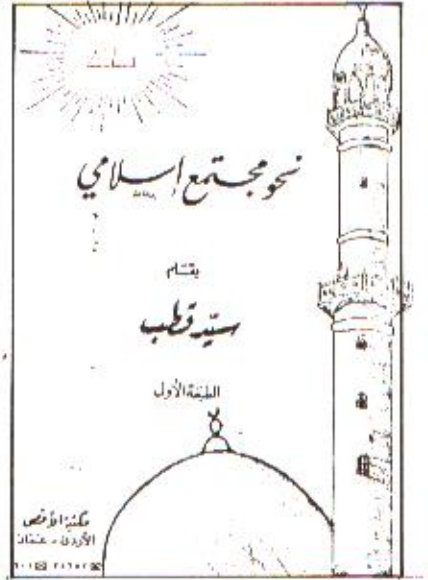 نحو مجتمع إسلامي
بقلم
سيّد قطب
الطبعة الأولى
مكتبة الأقصى
الأردن - عمّان